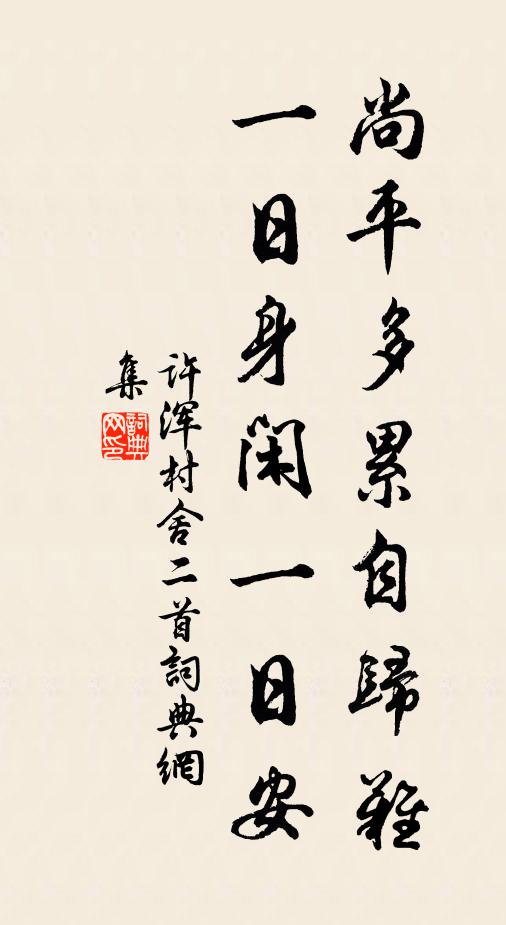 尚平多累自歸難
一日身閑一日安
許渾村舍二首詞典網
集
詞典
网印